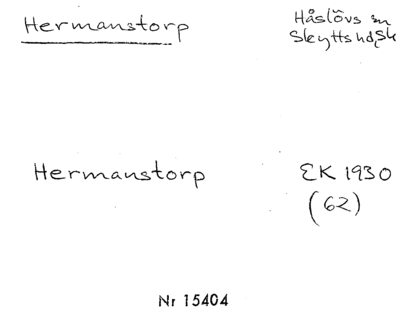 Hermanstorp
Håslövs sn
Skytts hd, Sk
Hermanstorp
EK 1930
(62)
Nr 15404